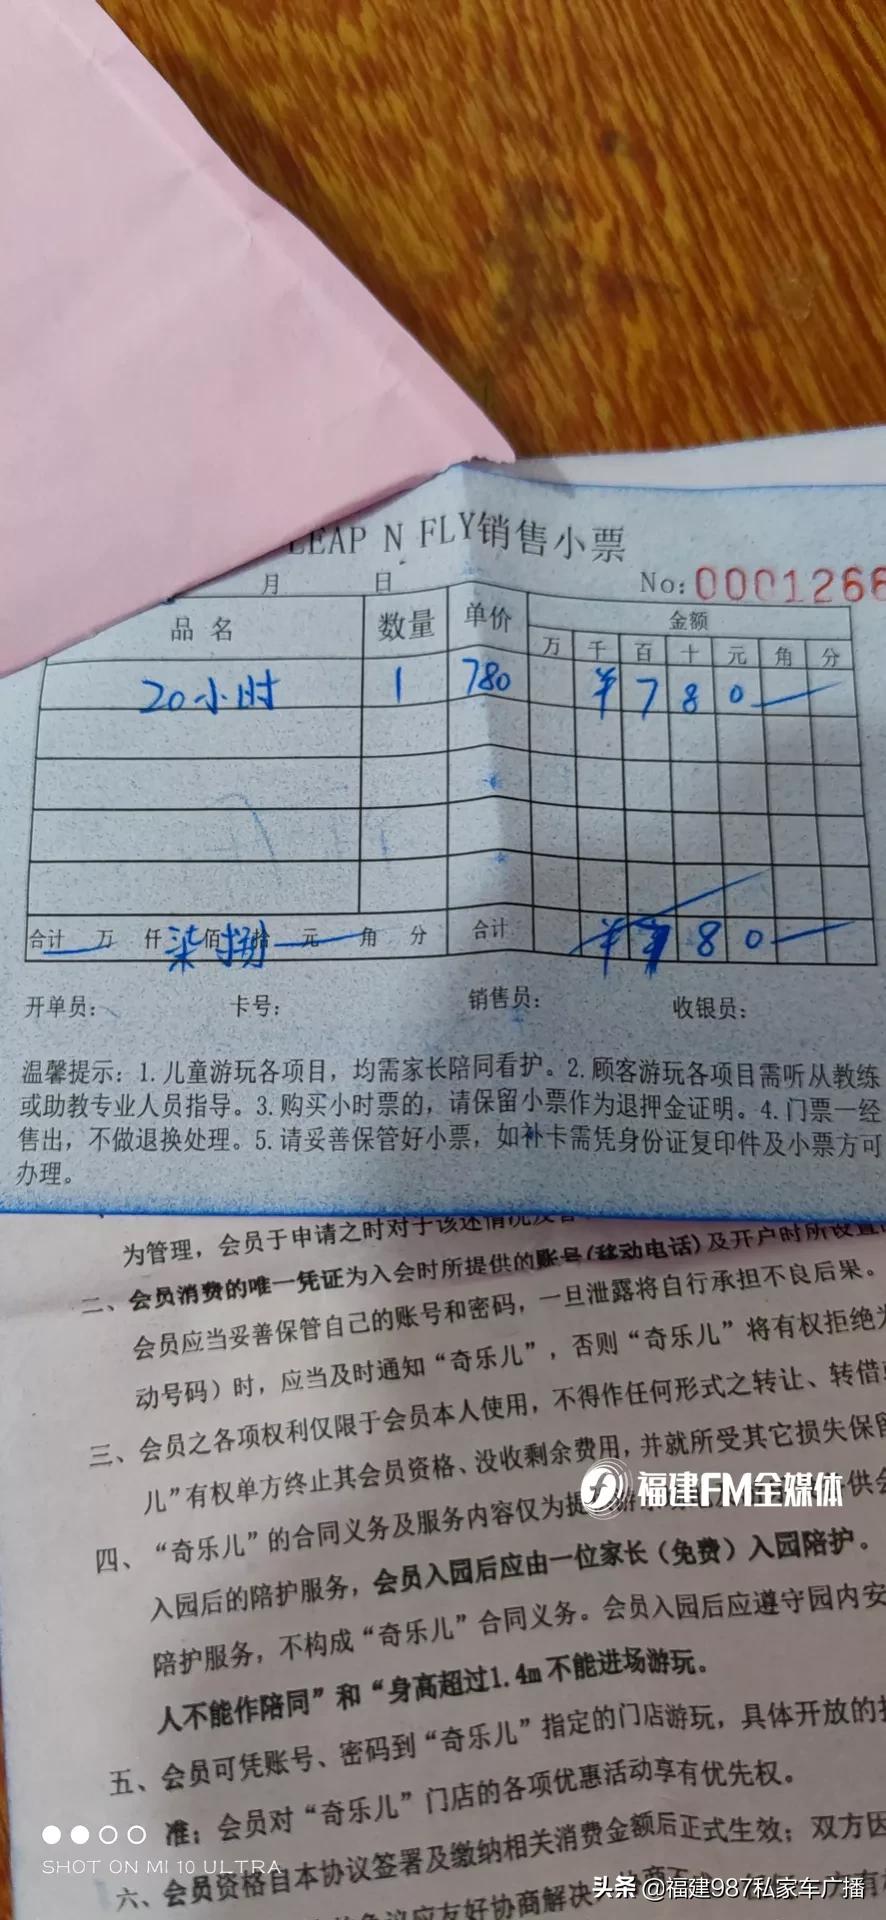 LEAP N FLY销售小票
月 日 No:0001266
品名 数量 单价 金额
万 千 百 十 元 角 分
20小时 1 780 ¥ 7 8 0
合计 万 仟 柒 佰 捌 拾 元 角 分 合计 ¥ 7 8 0
开单员: 卡号: 销售员: 收银员:
温馨提示：1.儿童游玩各项目，均需家长陪同看护。2.顾客游玩各项目需听从教练
或助教专业人员指导。3.购买小时票的，请保留小票作为退押金证明。4.门票一经
售出，不做退换处理。5.请妥善保管好小票，如补卡需凭身份证复印件及小票方可
办理。
为管理，会员于申请之时对于该述情况及
二、会员消费的唯一凭证为入会时所提供的账号(移动电话)及开户时所设置
会员应当妥善保管自己的账号和密码，一旦泄露将自行承担不良后果。
动号码）时，应当及时通知“奇乐儿”，否则“奇乐儿”将有权拒绝为
三、会员之各项权利仅限于会员本人使用，不得作任何形式之转让、转借
儿”有权单方终止其会员资格、没收剩余费用，并就所受其它损失保留
四、“奇乐儿”的合同义务及服务内容仅为提供 供会
福建FM全媒体
入园后的陪护服务，会员入园后应由一位家长（免费）入园陪护。
陪护服务，不构成“奇乐儿”合同义务。会员入园后应遵守园内安
人不能作陪同”和“身高超过1.4m不能进场游玩。
五、会员可凭账号、密码到“奇乐儿”指定的门店游玩，具体开放的
准；会员对“奇乐儿”门店的各项优惠活动享有优先权。
六、会员资格自本协议签署及缴纳相关消费金额后正式生效；双方因
争议应友好协商解决
SHOT ON MI 10 ULTRA
头条 @福建987私家车广播